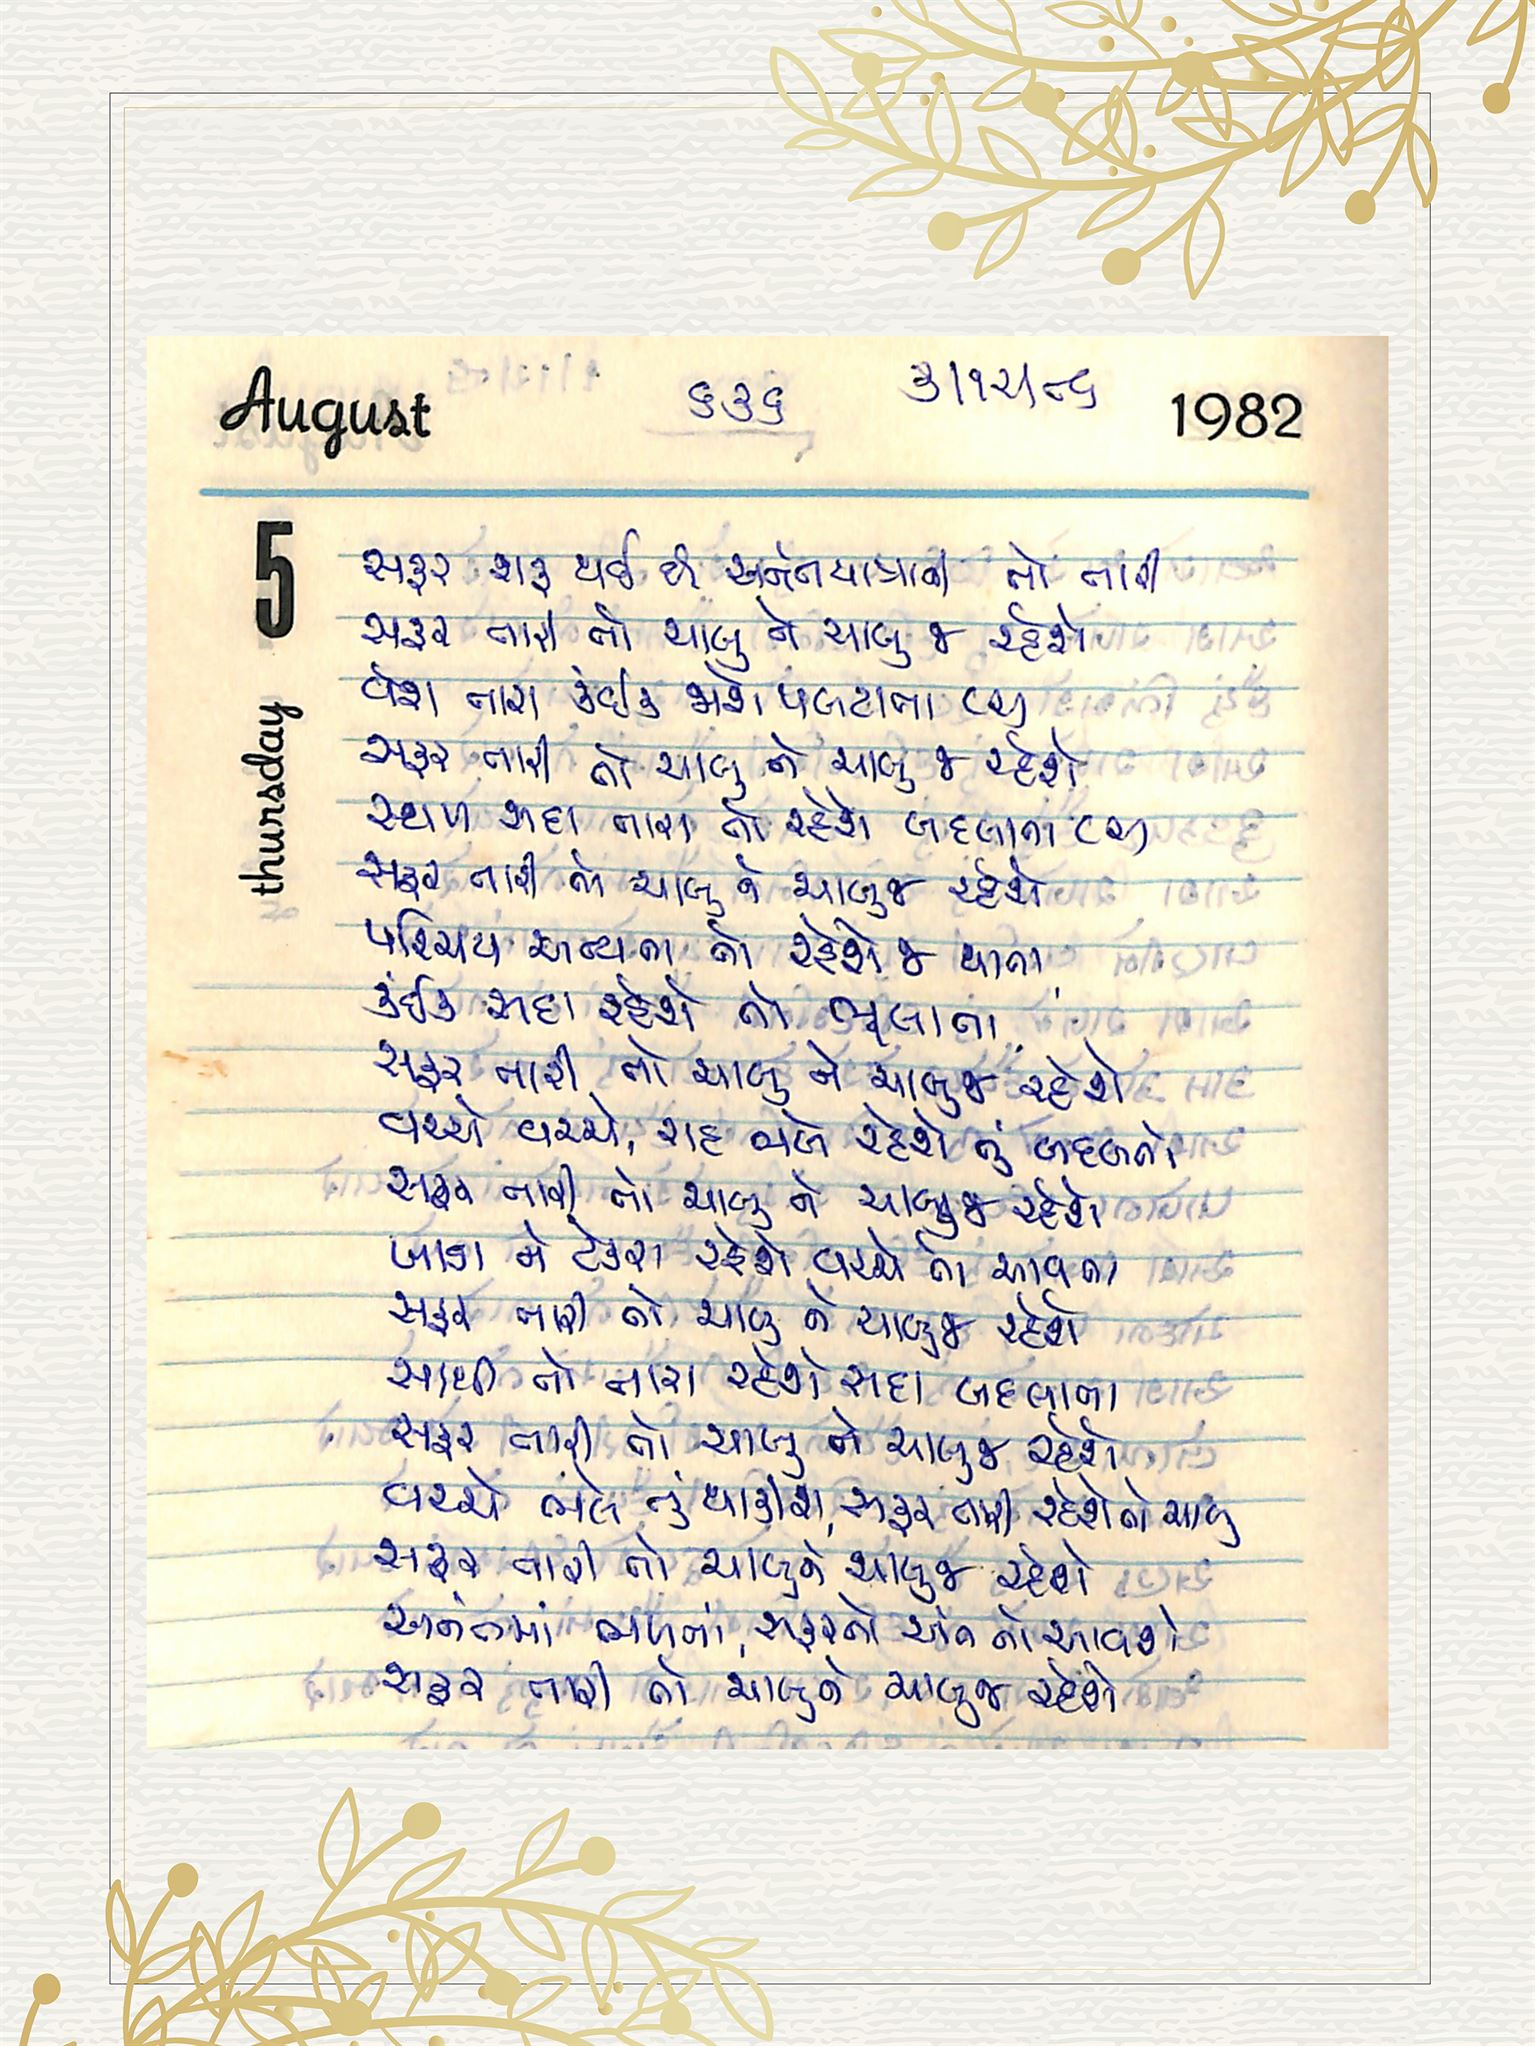 August ૬૩૬ ૩/૧૨/૮૬ 1982
5
thursday
સફર શરૂ થઈ છે અનંતયાત્રાની તો તારી
સફર તારી તો ચાલુ ને ચાલુ જ રહેશે
વેશ તારા કંઈક જાશે પલટાતા (૨)
સફર તારી તો ચાલુ ને ચાલુ જ રહેશે
સ્થળ સદા તારા તો રહેશે બદલાતા (૨)
સફર તારી તો ચાલુ ને ચાલુજ રહેશે
પરિચય અન્યના તો રહેશે જ થાતા
કંઈક સદા રહેશે તો ભૂલાતા
સફર તારી તો ચાલુ ને ચાલુજ રહેશે
વચ્ચે વચ્ચે, રાહ ભલે રહેશે તું બદલતો
સફર તારી તો ચાલુ ને ચાલુજ રહેશે
ખાડા ને ટેકરા રહેશે વચ્ચે તો આવતા
સફર તારી તો ચાલુ ને ચાલુજ રહેશે
સાથી તો તારા રહેશે સદા બદલાતા
સફર તારી તો ચાલુ ને ચાલુજ રહેશે
વચ્ચે ભલે તું થાકીશ, સફર તારી રહેશે તો ચાલુ
સફર તારી તો ચાલુને ચાલુજ રહેશે
અનંતમાં ભળતાં, સફરનો અંત તો આવશે
સફર તારી તો ચાલુને ચાલુજ રહેશે